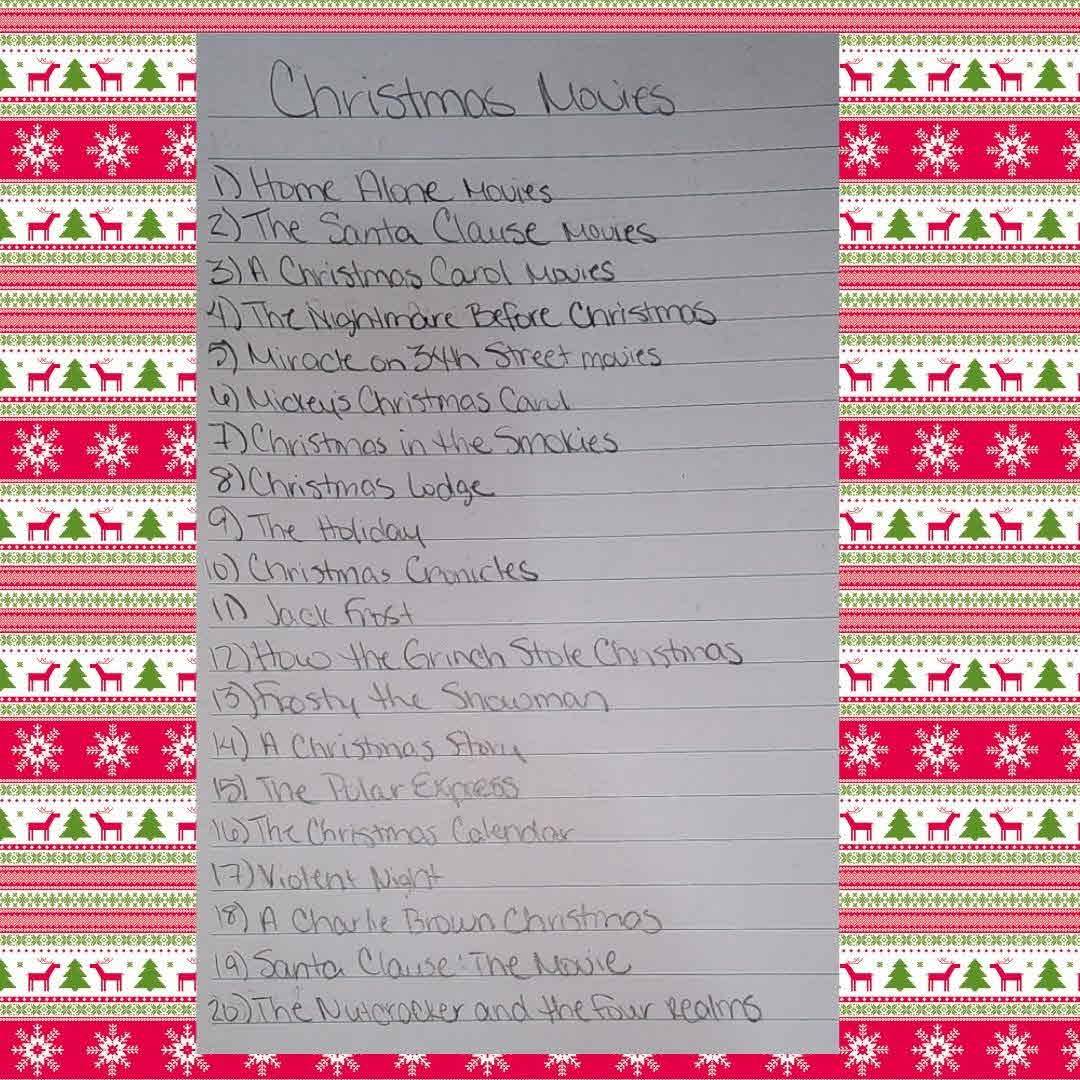 Christmas Movies
1) Home Alone Movies
2) The Santa Clause Movies
3) A Christmas Carol Movies
4) The Nightmare Before Christmas
5) Miracle on 34th Street movies
6) Mickey's Christmas Carol
7) Christmas in the Smokies
8) Christmas Lodge
9) The Holiday
10) Christmas Cronicles
11) Jack Frost
12) How the Grinch Stole Christmas
13) Frosty the Snowman
14) A Christmas Story
15) The Polar Express
16) The Christmas Calendar
17) Violent Night
18) A Charlie Brown Christmas
19) Santa Clause: The Movie
20) The Nutcracker and the Four Realms